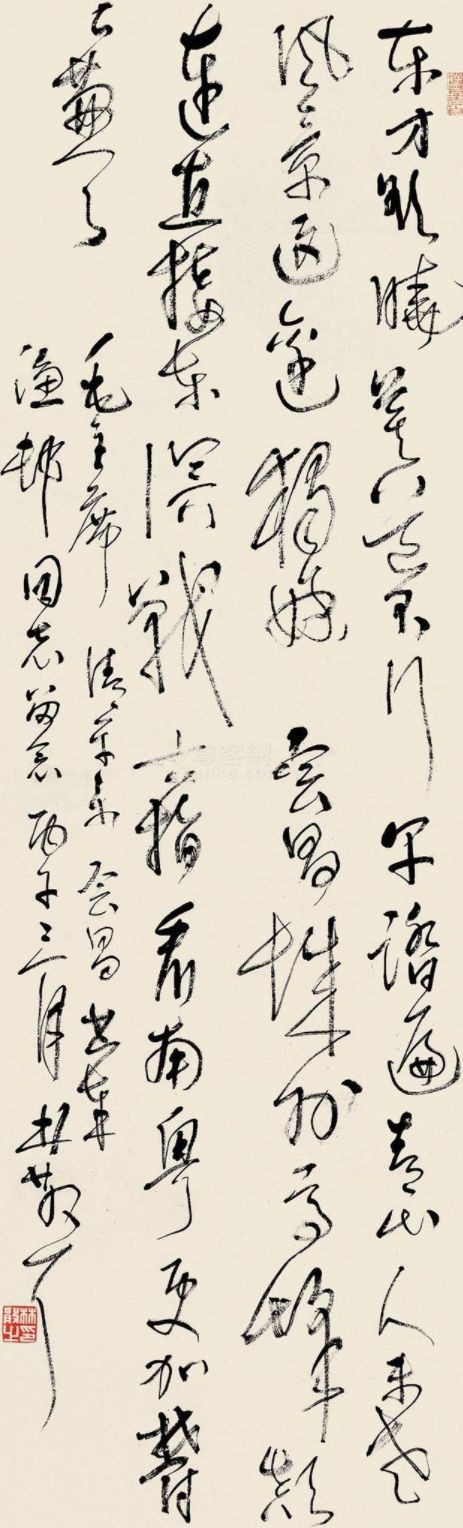 东方欲晓莫道君行早踏遍青山人未老
风景这边独好会昌城外高峰颠
连直接东溟战士指看南粤更加郁
々葱々
毛主席清平乐会昌书奉
邨同志留念三月林散耳